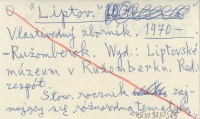 "Liptov."
Vlastivedný zborník. 1970 –
Ružomberok. Wyd.: Liptovské
múzeum v Ružomberku. Red:
zespół.
Stow. rocznik zaj-
mujący się różnorodną tematyką